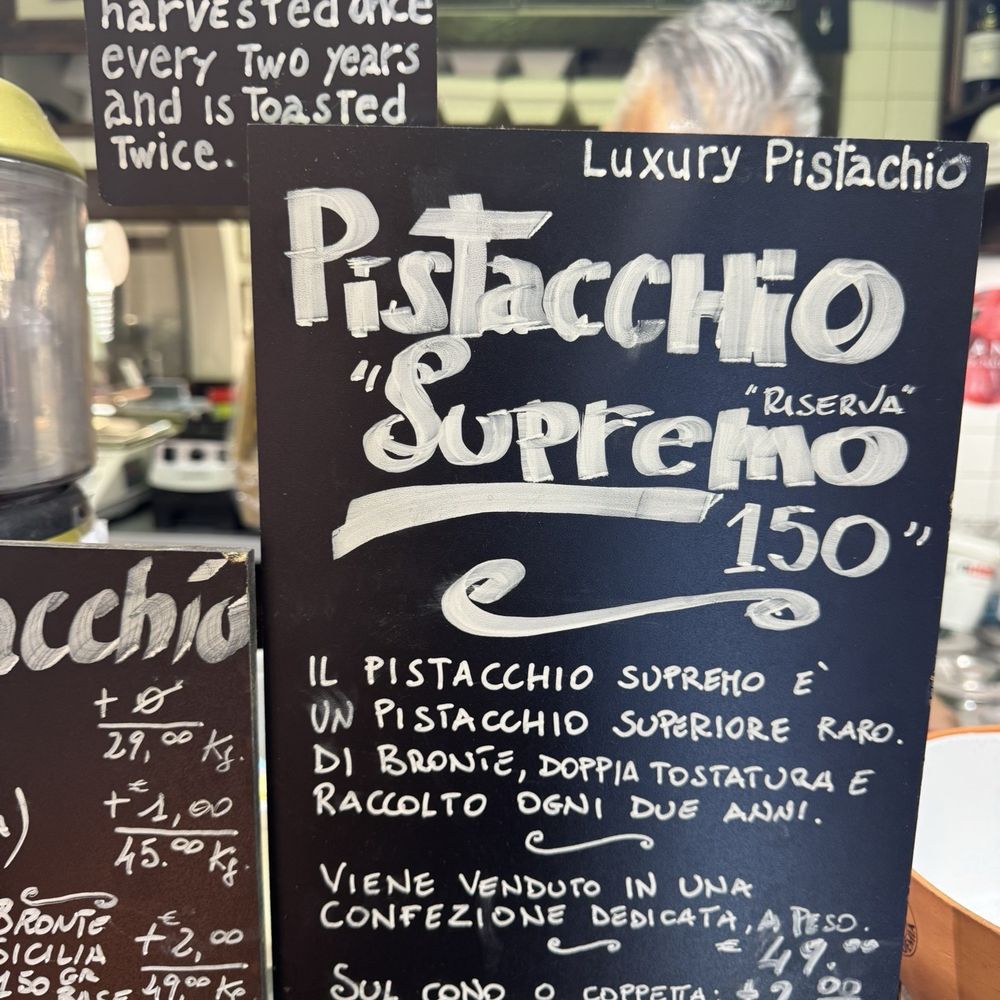 harvested once
every Two years
and is Toasted
Twice.
Luxury Pistachio
Pistacchio
"Supremo
"RISERVA"
150"
IL PISTACCHIO SUPREMO E`
UN PISTACCHIO SUPERIORE RARO.
DI BRONTE, DOPPIA TOSTATURA E
RACCOLTO OGNI DUE ANNI.
VIENE VENDUTO IN UNA
CONFEZIONE DEDICATA, A PESO.
€ 49.00
SUL CONO O COPPETTA: +2.00
acchio
+ 0
29,00 Kg.
+€1,00
45.00 Kg.
BRONTE
SICILIA
150 GR
BASE
+€2,00
49.00 Kg